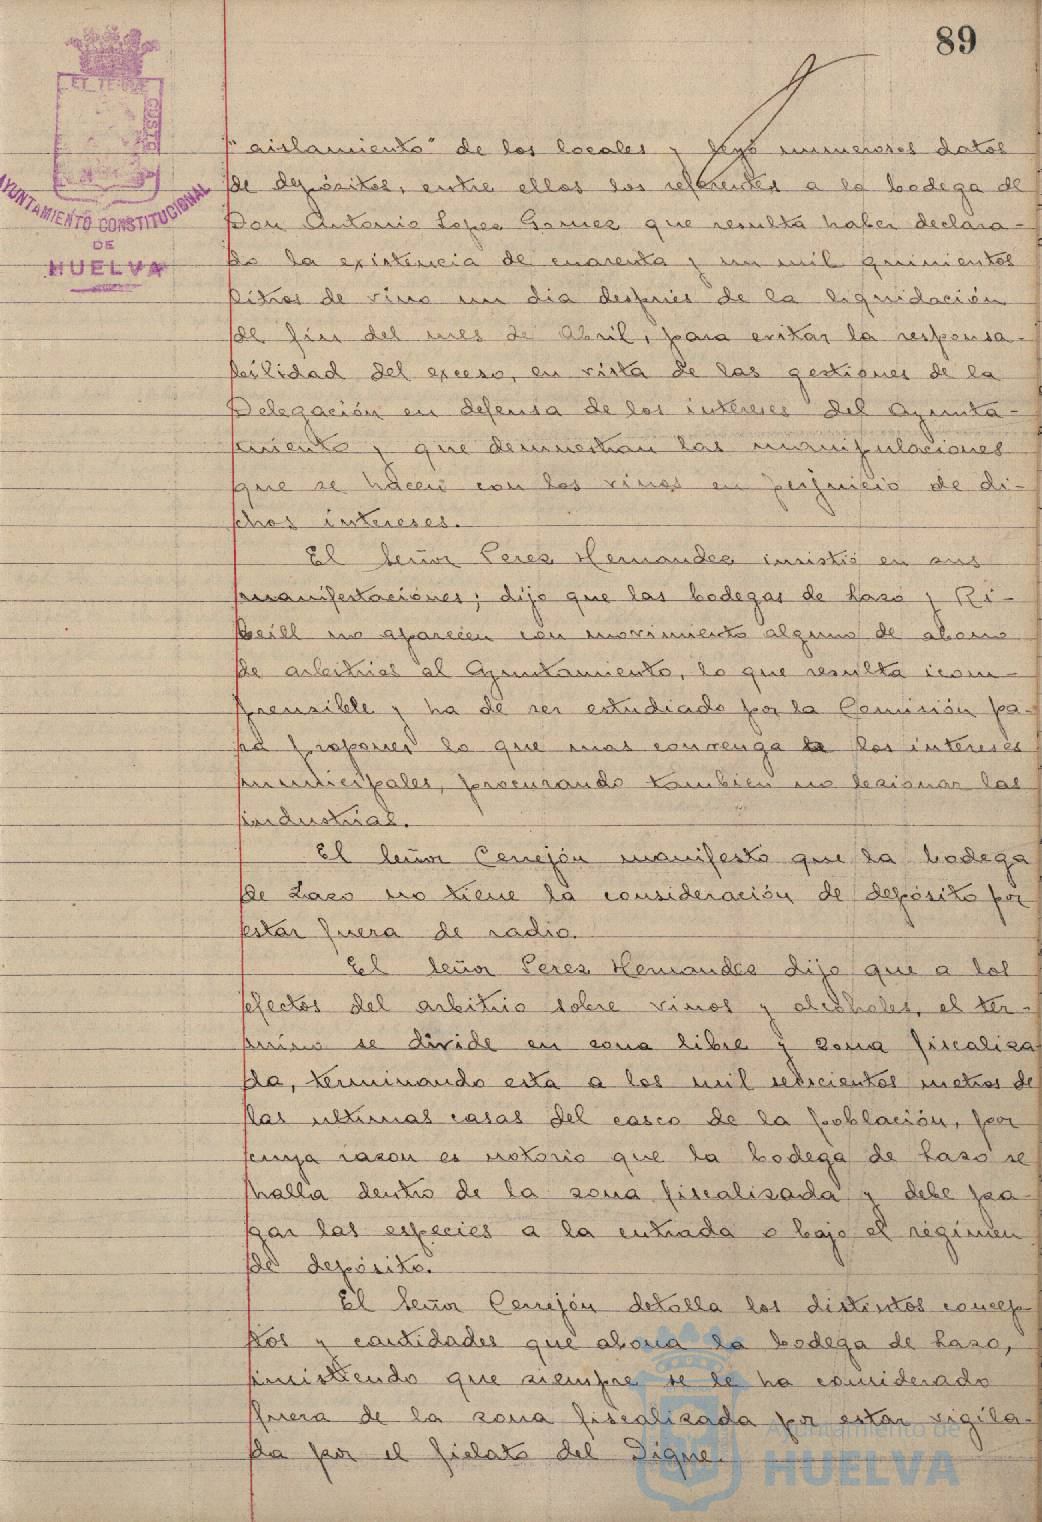 89
ET TERRE
CUSTO
AYUNTAMIENTO CONSTITUCIONAL
DE
HUELVA
"aislamiento" de los locales y leyó numerosos datos
de depósitos, entre ellos los referentes a la bodega de
Don Antonio Lopez Gomez que resulta haber declara-
do la existencia de cuarenta y un mil quinientos
litros de vino un dia después de la liquidación
de fin del mes de Abril, para evitar la responsa-
bilidad del exceso, en vista de las gestiones de la
Delegación en defensa de los intereses del Ayunta-
miento y que demuestran las manipulaciones
que se hacen con los vinos en perjuicio de di-
chos intereses.
El Señor Perez Hernandez insistió en sus
manifestaciónes; dijo que las bodegas de Lazo y Ri-
beill no aparecen con movimiento alguno de abono
de arbitrios al Ayuntamiento, lo que resulta icom-
prensible y ha de ser estudiado por la Comisión pa-
ra proponer lo que mas convenga a los intereses
municipales, procurando tambien no lesionar las
industrias.
El Señor Cerrejón manifesto que la bodega
de Lazo no tiene la consideración de depósito por
estar fuera de radio.
El Señor Perez Hernandez dijo que a los
efectos del arbitrio sobre vinos y alcoholes, el ter-
mino se divide en zona libre y zona fiscaliza
da, terminando esta a los mil seiscientos metros de
las ultimas casas del casco de la población, por
cuya razon es notorio que la bodega de Lazo se
halla dentro de la zona fiscalizada y debe pa-
gar las especies a la entrada o bajo el régimen
de depósito.
El Señor Cerrejón detalla los distintos concep-
tos y cantidades que abona la bodega de Lazo,
insistiendo que siempre se le ha considerado
fuera de la zona fiscalizada por estar vigila-
da por el fielato del Dique.
Ayuntamiento de
HUELVA